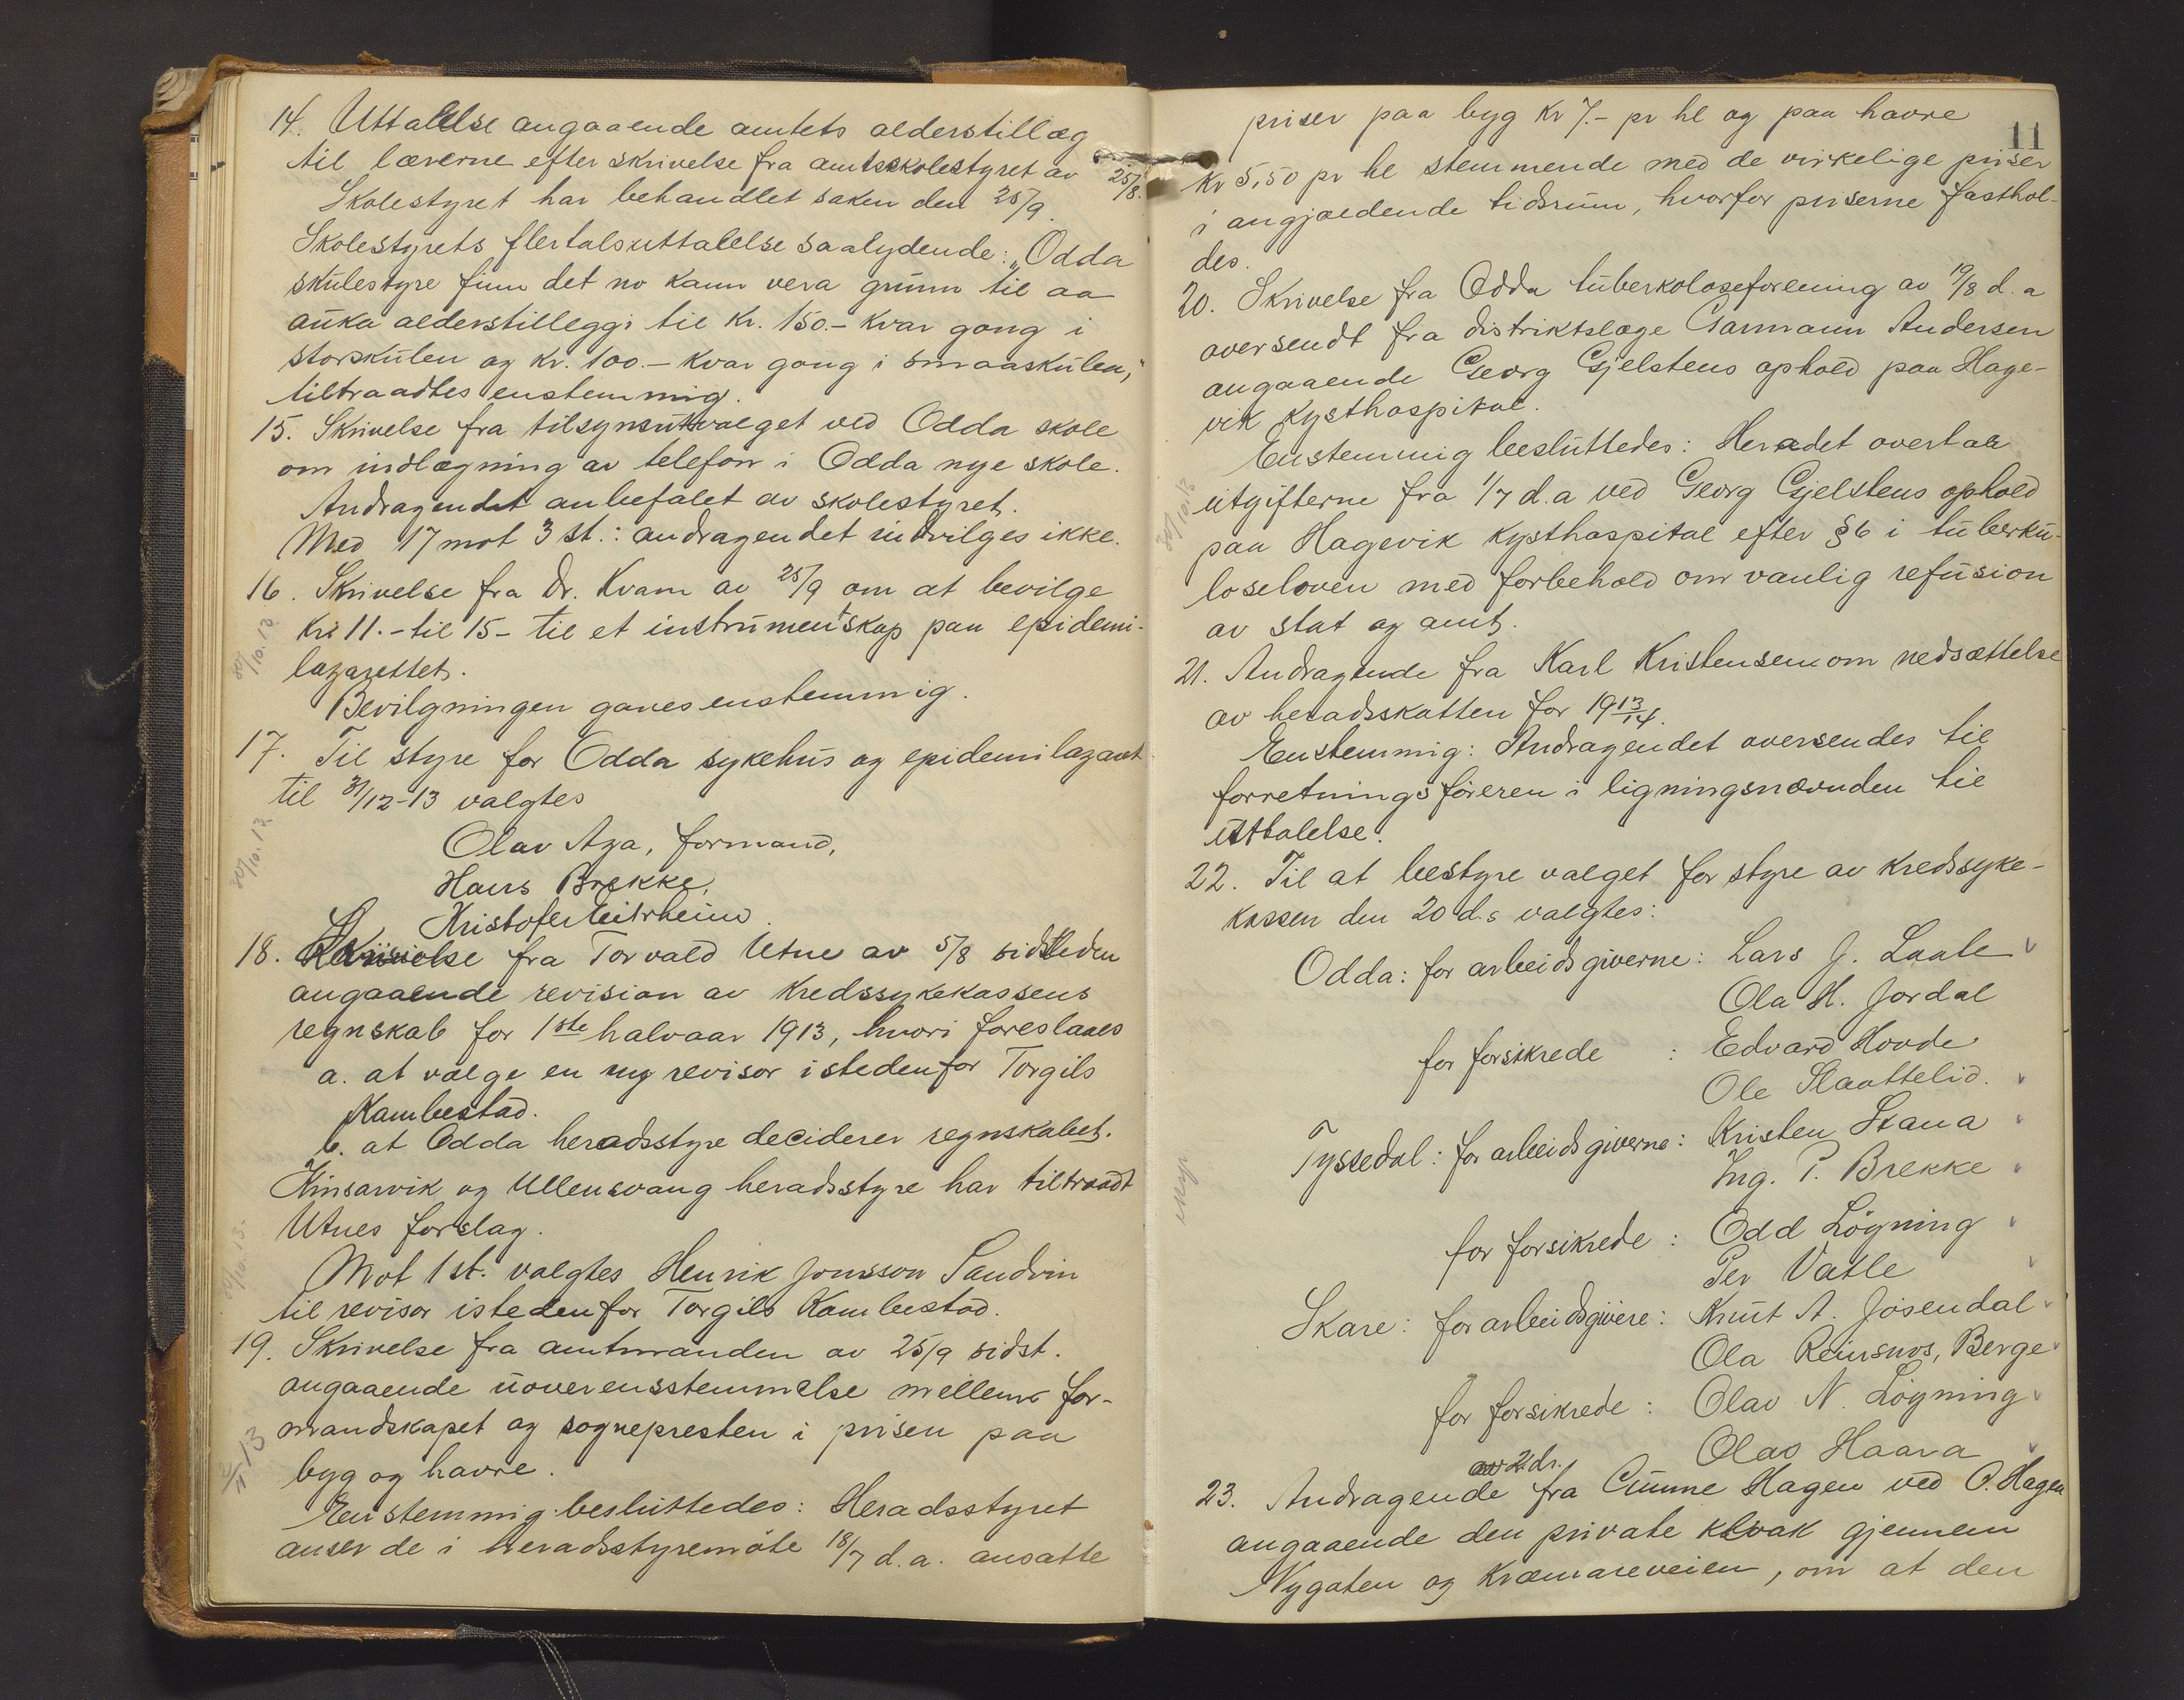 14. Uttalelse angaaende amtets alderstillæg
til lærerne efter skrivelse fra amtsskolestyret av 25/8.
Skolestyret har behandlet saken den 25/9.
Skolestyrets flertalsuttalelse saalydende: „Odda
skulestyre finn det no kann vera grunn til aa
auka alderstilleggi til Kr. 150.- kvar gong i
storskulen og Kr. 100.- kvar gong i smaaskulen,"
tiltraadtes enstemmig.
15. Skrivelse fra tilsynsutvalget ved Odda skole
om indlægning av telefon i Odda nye skole.
Andragendet anbefalet av skolestyret.
Med 17 mot 3 st.: andragendet indvilges ikke.
16. Skrivelse fra Dr. Kvam av 25/9 om at bevilge
Kr 11.- til 15- til et instrumentskap paa epidemi-
lazarettet.
30/10.13
Bevilgningen gaves enstemmig.
17. Til styre for Odda sykehus og epidemilazaret
til 31/12-13 valgtes
30/10.13.
Olav Aga, formand,
Hans Brekke,
Kristofer Eitrheim.
18. Skrivelse fra Torvald Utne av 5/8 sidstleden
angaaende revision av Kredssykekassens
regnskab for 1ste halvaar 1913, hvori foreslaaes
a. at vælge en ny revisor istedenfor Torgils
Kambestad.
b. at Odda heradsstyre deciderer regnskabet.
Kinsarvik og Ullensvang heradsstyre har tiltraadt
Utnes forslag.
Mot 1 st. valgtes Henrik Jonsson Sandvin
til revisor istedenfor Torgils Kambestad.
19. Skrivelse fra amtmanden av 25/9 sidst.
angaaende uoverensstemmelse mellem for-
mandskapet og sognepresten i prisen paa
byg og havre.
Enstemmig besluttedes: Heradsstyret
anser de i heradsstyremöte 18/7 d.a. ansatte
11
priser paa byg Kr 7.- pr hl og paa havre
Kr 5,50 pr hl stemmende med de virkelige priser
i angjældende tidsrum, hvorfor priserne fasthol-
des.
20. Skrivelse fra Odda tuberkoloseforening av 19/8 d.a
oversendt fra distriktslæge Garmann Andersen
angaaende Georg Gjelstens ophold paa Hage-
vik Kysthospital.
Enstemmig besluttedes: Heradet overtar
utgifterne fra 1/7 d.a ved Georg Gjelstens ophold
30/10.13
paa Hagevik Kysthospital efter §6 i tuberku-
loseloven med forbehold om vanlig refusion
av stat og amt.
21. Andragende fra Karl Kristensen om nedsættelse
av heradsskatten for 1913/14.
Enstemmig: Andragendet oversendes til
forretningsföreren i ligningsnævnden til
uttalelse.
22. Til at bestyre valget for styre av kredssyke-
kassen den 20 d.s valgtes:
Odda: for arbeidsgiverne: Lars J. Laate
Ola H. Jordal
for forsikrede : Edvard Hovde
Ole Slaattelid.
Tyssedal: for arbeidsgiverne: Kristen Stana
Ing. P. Brekke
for forsikrede : Odd Lögning
Per Vatle
Skare: for arbeidsgivere: Knut A. Jösendal
Ola Reinsnos, Berge
for forsikrede : Olav N. Lögning
Olav Haara
av 2 dr.
23. Andragende fra Gunne Hagen ved O. Hagen
angaaende den private kloak gjennem
Nygaten og Kræmareveien, om at den